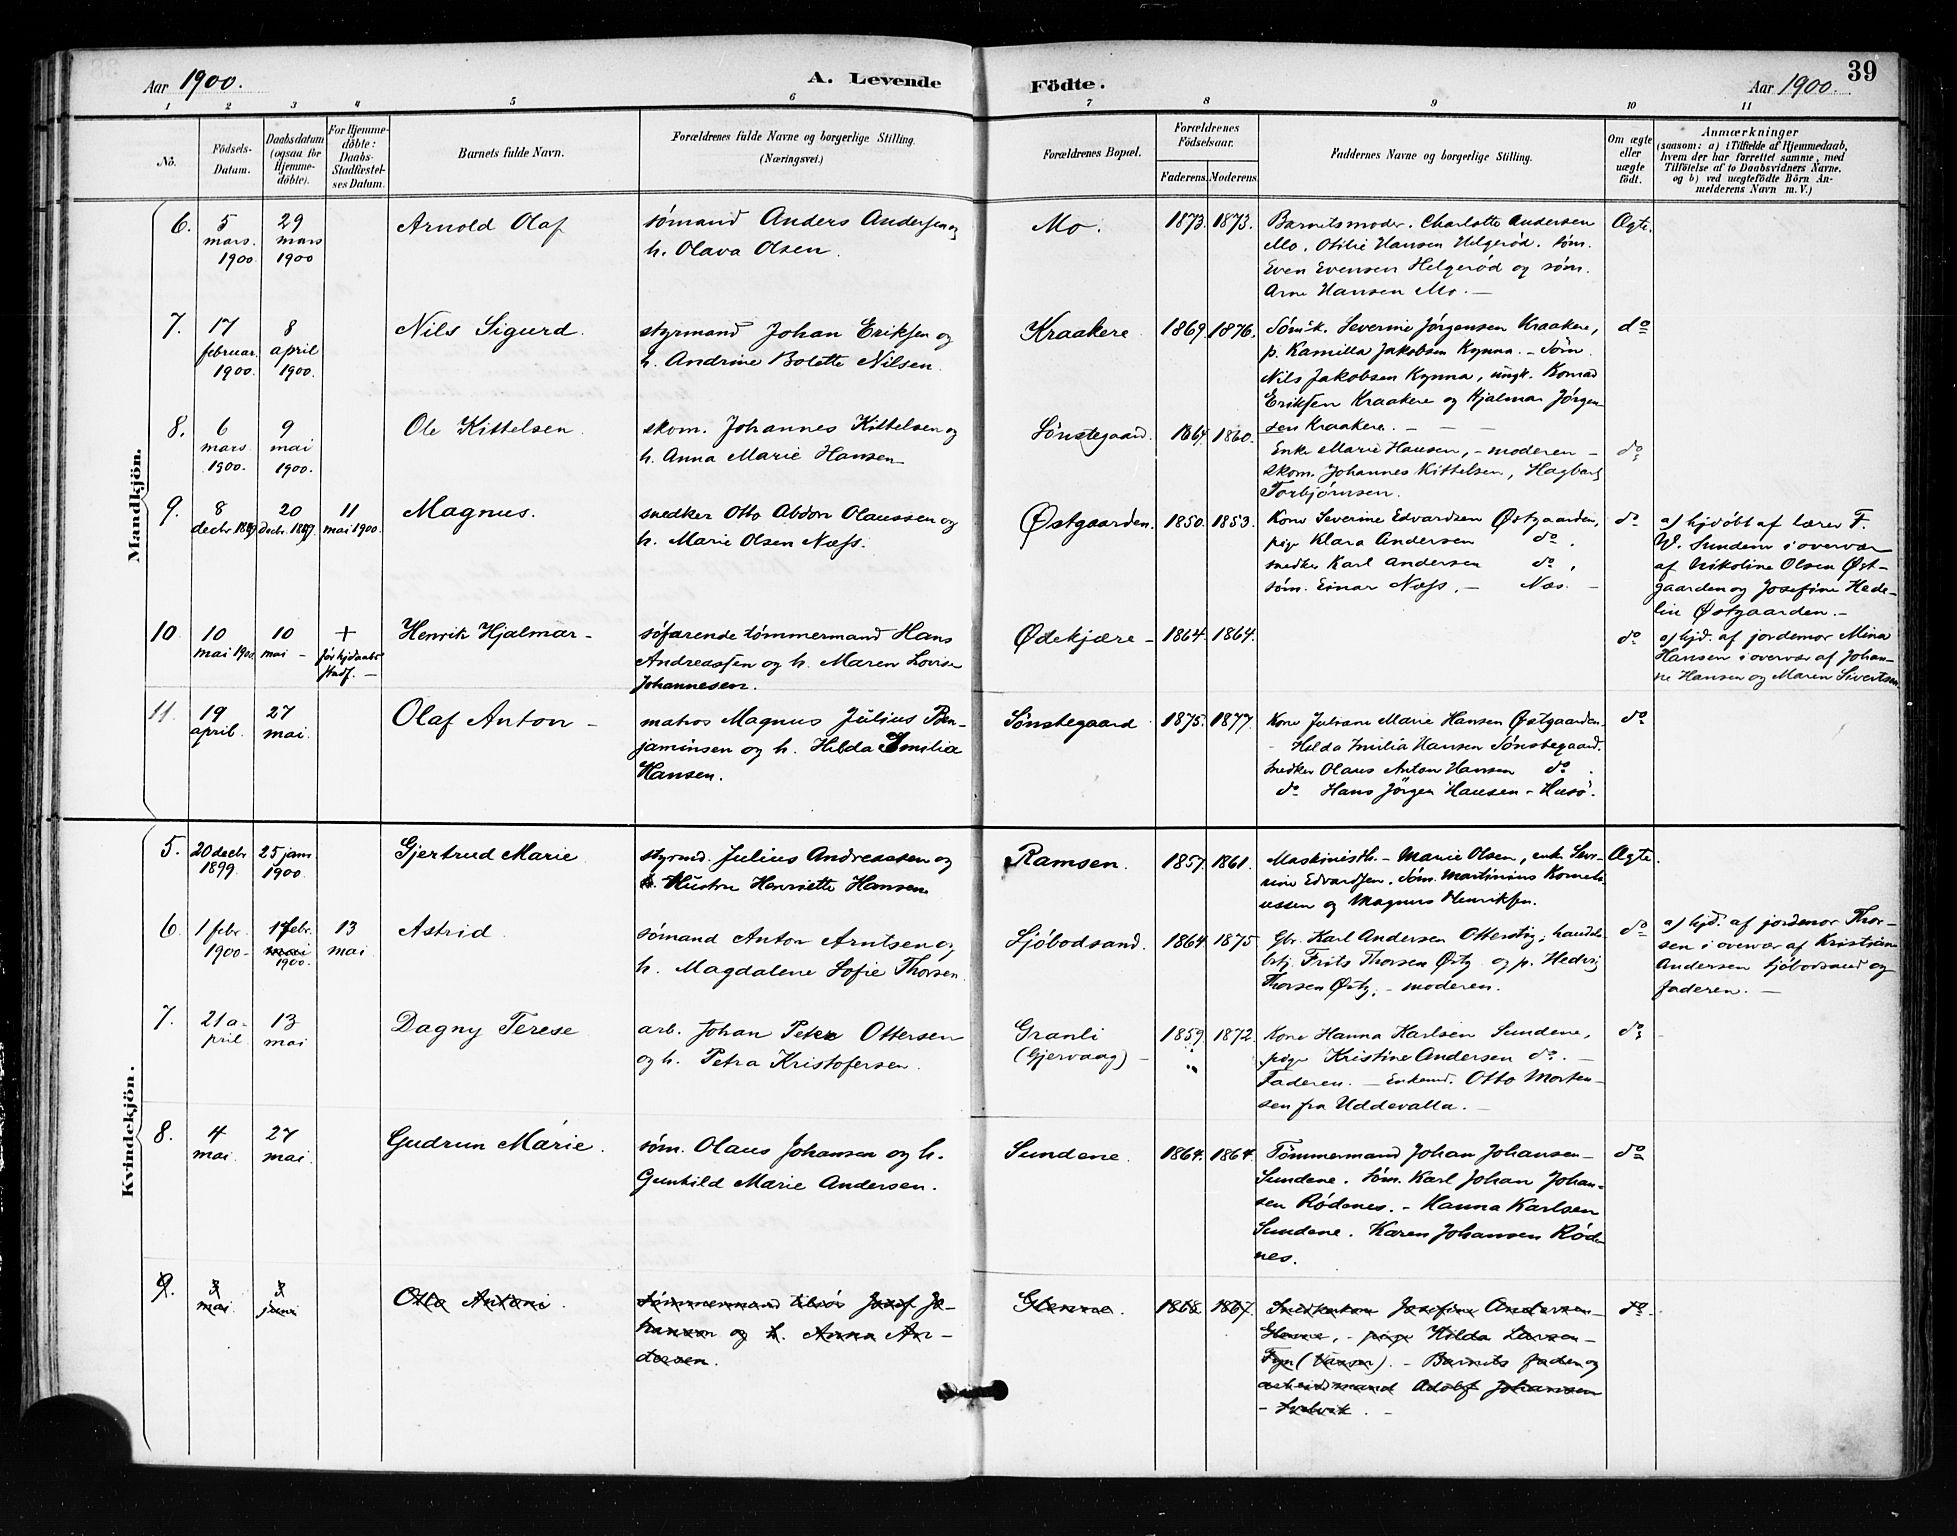 Aar 1900.
A. Levende
Födte.
Aar 1900.
39
1 2 3 4 5 6 7 8 9 10 11
No.
Födsels-
Datum.
Daabsdatum
(ogsaa for
Hjemme-
döbte).
For Hjemme-
döbte:
Daabs-
Stadfæstel-
ses Datum.
Barnets fulde Navn.
Forældrenes fulde Navne og borgerlige Stilling.
(Næringsvei.)
Forældrenes Bopæl.
Forældrenes
Födselsaar.
Faderens. Moderens.
Faddernes Navne og borgerlige Stilling.
Om ægte
eller
uægte
födt.
Anmærkninger
(saasom: a) i Tilfælde af Hjemmedaab,
hvem der har forrettet samme, med
Tilföielse af to Daabsvidners Navne.
og b) ved uægtefödte Börn An-
melderens Navn m. V.)
Mandkjön.
6.
5
mars.
1900.
29
mars
1900
Arnold Olaf
sømand Anders Andersen og
h. Olava Olsen.
Mo.
1873. 1873.
Barnets moder. Charlotte Andersen
Mo. Otilie Hansen Helgerød. søm.
Even Evensen Helgerød og søm.
Arne Hansen Mo. —
Ægte.
7.
17
februar.
1900.
8
april
1900.
Nils Sigurd.
styrmand Johan Eriksen og
h. Andrine Bolette Nilsen.
Kraakere
1869. 1876.
Søm.k. Severine Jørgensen Kraakere,
p. Kamilla Jakobsen Kynna. – Søm.
Nils Jakobsen Kynna, ungk. Konrad
Eriksen Kraakere og Hjalmar Jørgen-
sen Kraakere. — — —
do
8.
6
mars.
1900.
9
mai
1900.
Ole Kittelsen
skom. Johannes Kittelsen og
h. Anna Marie Hansen
Sønstegaard.
1864. 1860.
Enke Marie Hansen, – moderen –
skom. Johannes Kittelsen, Hagbart
Torbjørnsen.
do
9.
8
decbr. 1899
20
decbr. 1899.
11
mai 1900.
Magnus.
snedker Otto Abdon Olaussen og
h. Marie Olsen Næss.
Østgaarden.
1850. 1853.
Kone Severine Edvardsen Østgaarden,
pige Klara Andersen do.
snedker Karl Andersen do,
søm. Einar Næss, – Næs. –
do
a) hjdøbt af lærer F.
W. Sundem i overvær
af Nikoline Olsen Øst-
gaarden og Josefine Hede-
lin Østgaarden. –
10
10
mai 1900
10
mai –
+
før hjdaabs
stadf. –
Henrik Hjalmar –
søfarende tømmermand Hans
Andreassen og h. Maren Lovise
Johannesen.
Ødekjære –
1864. 1864.
do
a) hjd. af jordemor Mina
Hansen i overvær af Johan-
ne Hansen og Maren Sivertsen.
11.
19
april.
27
mai.
Olaf Anton –
matros Magnus Julius Ben-
jaminsen og h. Hilda Emilia
Hansen.
Sønstegaard
1875. 1877.
Kone Juliane Marie Hansen Østgaarden.
– Hilda Emilia Hansen Sønstegaard.
snedker Olaus Anton Hansen do.
do Hans Jørgen Hansen – Husø.
do
Kvindekjön.
5.
20 decbr.
1899.
25 jan.
1900.
Gjertrud Marie
styrmd. Julius Andreassen og
h. Hustru Henriette Hansen
Ramsen.
1857. 1861.
Maskinisth. – Marie Olsen, enk. Seve-
rine Edvardsen. Søm. Martinius Korneli-
ussen og Magnus Henriksen.
Ægte.
6.
1 febr.
1900 –
17 febr.
mai
1900.
13
mai
Astrid
sømand Anton Arntsen og
h. Magdalene Sofie Thorsen
Sjøbodsand.
1864 1875
Gbr. Karl Andersen Otterstig; handels-
bstj. Frits Thorsen Østg. og p. Hedvig
Thorsen Østg. – moderen.
do
a) hjd. af jordemor Thor-
sen i overvær af Kristian
Andersen Sjøbodsand og
faderen. –
7.
21 a-
pril
13
mai
Dagny Terese
arb. Johan Peter Ottersen
og h. Petra Kristofersen.
Granli
(Gjervaag) –
1859. 1872.
Kone Hanna Karlsen Sundene,
pige Kristine Andersen do. –
Faderen. – Enkemd. Otto Morten-
sen fra Uddevalla. –
do
8.
4
mai.
27
mai.
Gudrun Marie.
søm. Olaus Johansen og h.
Gunhild Marie Andersen.
Sundene.
1864. 1864.
Tømmermand Johan Johansen –
Sundene. Søm. Karl Johan Johan-
sen Rødenes. – Hanna Karlsen
Sundene. Karen Johansen Røde-
nes.
do
9.
3
mai.
3
juni
Otto Antoni.
tømmermand tilsjøs Josef Jo-
hansen og h. Anna An-
dersen.
Glenne.
1868 1867.
Josefine Andersen –
Glenne, – pige Hilda Larsen –
Fyn – Barnets fader og
arbeidsmand Adolf Johansen
– Svelvik. –
do